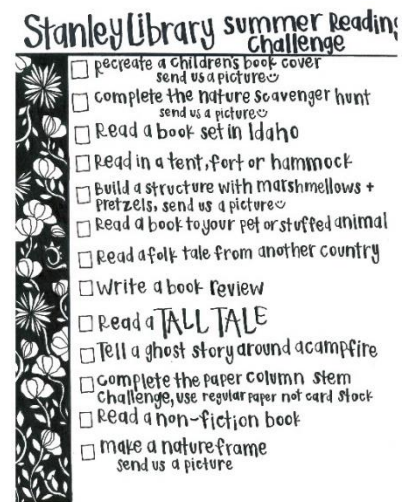 Stanley Library summer Reading
Challenge
Recreate a children's book cover
send us a picture
complete the nature scavenger hunt
send us a picture
Read a book set in Idaho
Read in a tent, fort or hammock
Build a structure with marshmellows +
Pretzels, send us a picture
Read a book to your pet or stuffed animal
Read a folk tale from another country
Write a book review
Read a TALL TALE
Tell a ghost story around a campfire
Complete the paper column stem
challenge, use regular paper not card stock
Read a non-fiction book
make a nature frame
send us a picture